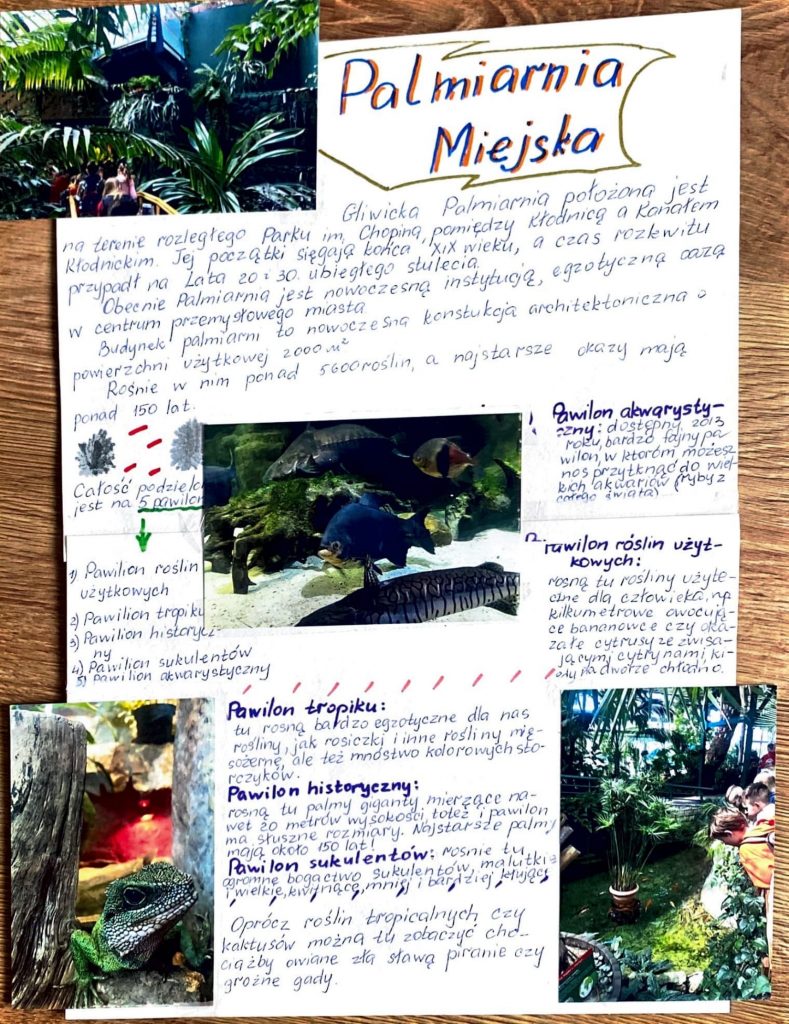 Palmiarnia
Miejska
Gliwicka Palmiarnia położoną jest
na terenie rozległego Parku im. Chopina, pomiędzy Kłodnicą a Kanałem
Kłodnickim. Jej początki sięgają końca XIX wieku, a czas rozkwitu
przypadł na Lata 20 i 30. ubiegłego stulecia.
Obecnie Palmiarnia jest nowoczesną instytucją, egzotyczną oazą
w centrum przemysłowego miasta
Budynek palmiarni to nowoczesna konstukcja architektoniczna o
powierzchni użytkowej 2000 m²
Rośnie w nim ponad 5600 roślin, a najstarsze okazy mają
ponad 150 lat.
Całość podzielo
jest na 5 pawilon
1) Pawilion roślin
użytkowych
2) Pawilion tropiku
3) Pawilion historycz-
ny
4) Pawilion sukulentów
5) Pawilion akwarystyczny
Pawilon akwarysty-
czny: dostępny, 2013
roku, bardzo fajny pa
wilon, w którym możesz
nos przytknąć do wiel-
kich akwariów (ryby z
całego świata)
Pawilon róślin użyt-
kowych:
rosną tu rośliny użyte-
czne dla człowieka, np
kilkumetrowe owocują-
ce bananowce czy oka-
załe cytrusy ze zwisa-
jącymi cytrynami, ki-
edy na dworze chłodno.
Pawilon tropiku:
tu rosną bardzo egzotyczne dla nas
rośliny, jak rosiczki i inne rośliny mię-
sożerne, ale też mnóstwo kolorowych sto-
rczyków.
Pawilon historyczny:
rosną tu palmy giganty mierzące na-
wet 20 metrów wysokości, toteż i pawilon
ma słuszne rozmiary. Najstarsze palmy
mają około 150 lat!
Pawilon sukulentów: rośnie tu
ogromne bogactwo sukulentów, malutkie
i wielkie, kwitnące, mniej i bardziej kłujące
Oprócz roślin tropicalnych czy
kaktusów możną tu zobaczyć cho-
ciażby owiane złą sławą piranie czy
groźne gady.